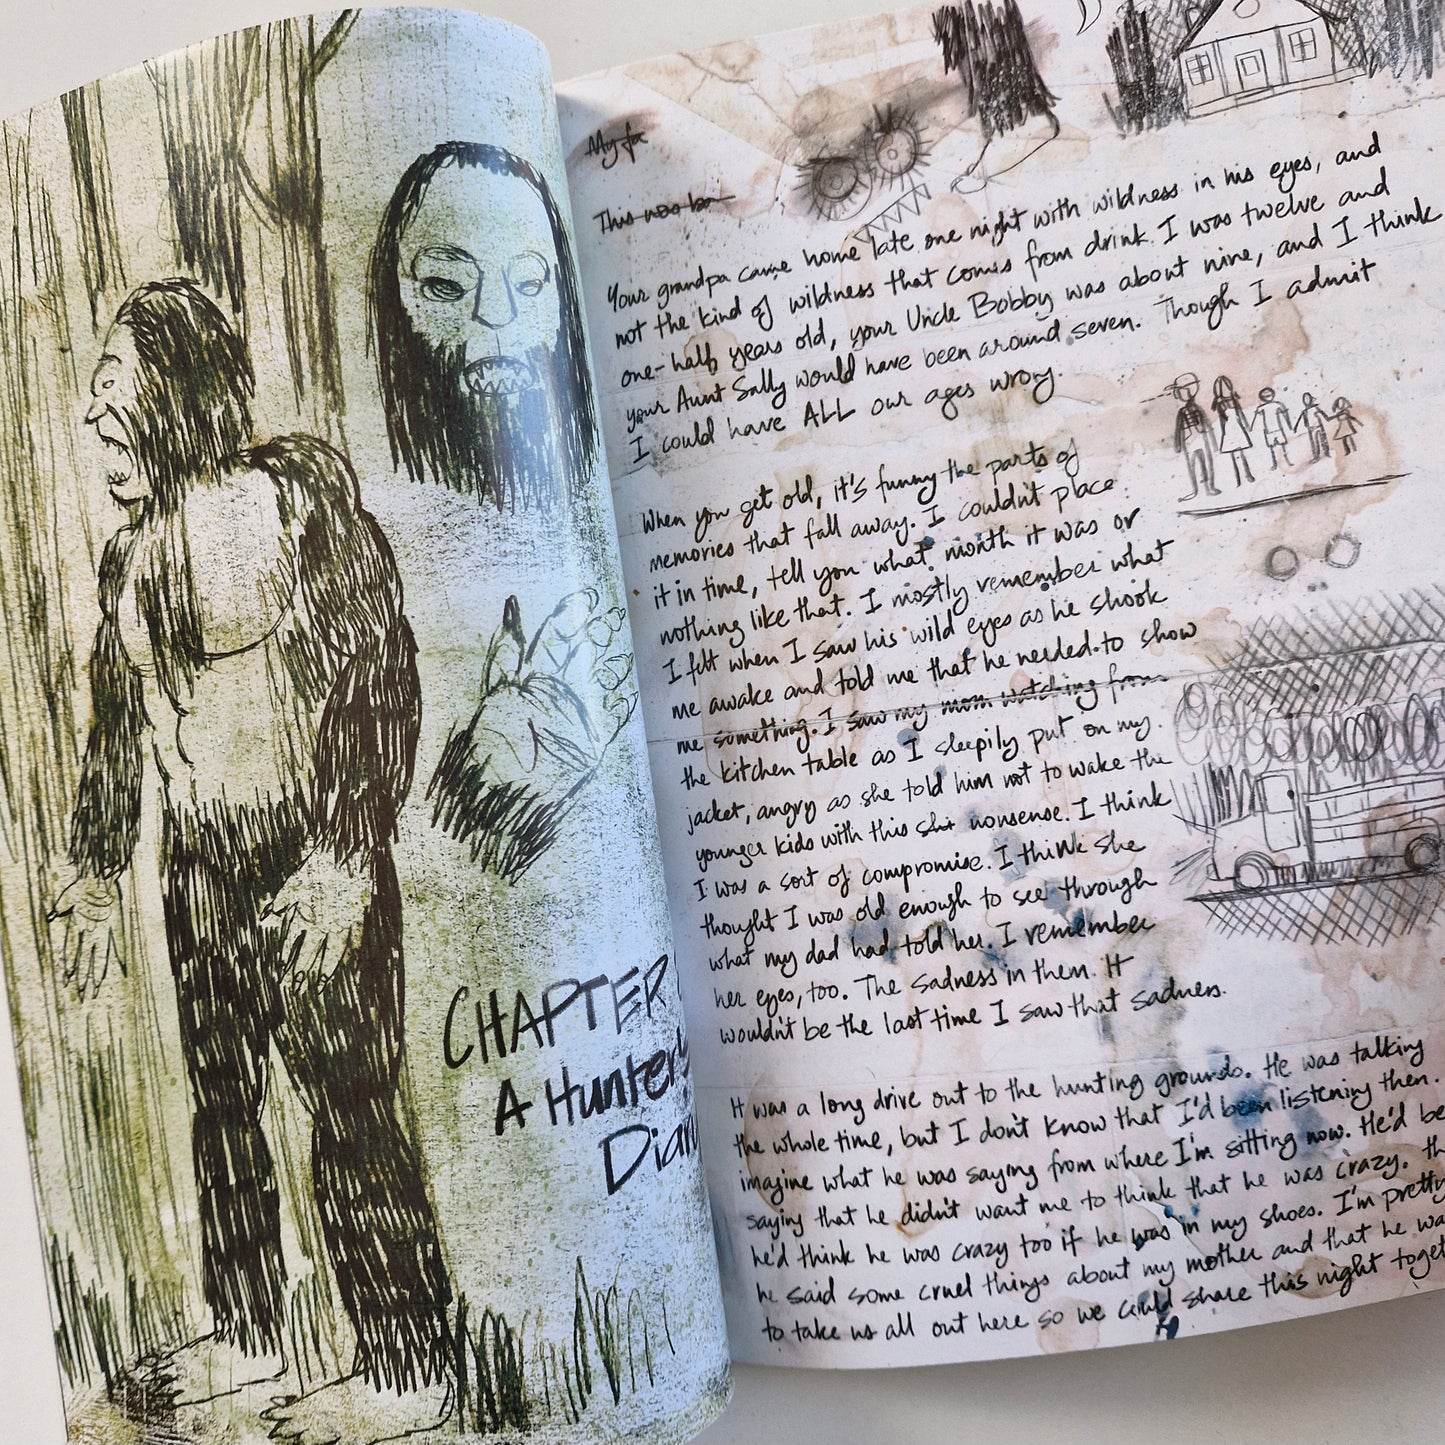 CHAPTER
A Hunter's
Diary
My fa
This was la
Your grandpa came home late one night with wildness in his eyes, and
not the kind of wildness that comes from drink. I was twelve and
one-half years old, your Uncle Bobby was about nine, and I think
your Aunt Sally would have been around seven. Though I admit
I could have ALL our ages wrong.
When you get old, it's funny the parts of
memories that fall away. I couldn't place
it in time, tell you what month it was or
nothing like that. I mostly remember what
I felt when I saw his wild eyes as he shook
me awake and told me that he needed to show
me something. I saw my mom watching from
the kitchen table as I sleepily put on my
jacket, angry as she told him not to wake the
younger kids with this shit nonsense. I think
I was a sort of compromise. I think she
thought I was old enough to see through
what my dad had told her. I remember
her eyes, too. The sadness in them. It
wouldn't be the last time I saw that sadness.
It was a long drive out to the hunting grounds. He was talking
the whole time, but I don't know that I'd been listening then. I
imagine what he was saying from where I'm sitting now. He'd be
saying that he didn't want me to think that he was crazy. Th
he'd think he was crazy too if he was in my shoes. I'm pretty
he said some cruel things about my mother and that he wa
to take us all out here so we could share this night toget